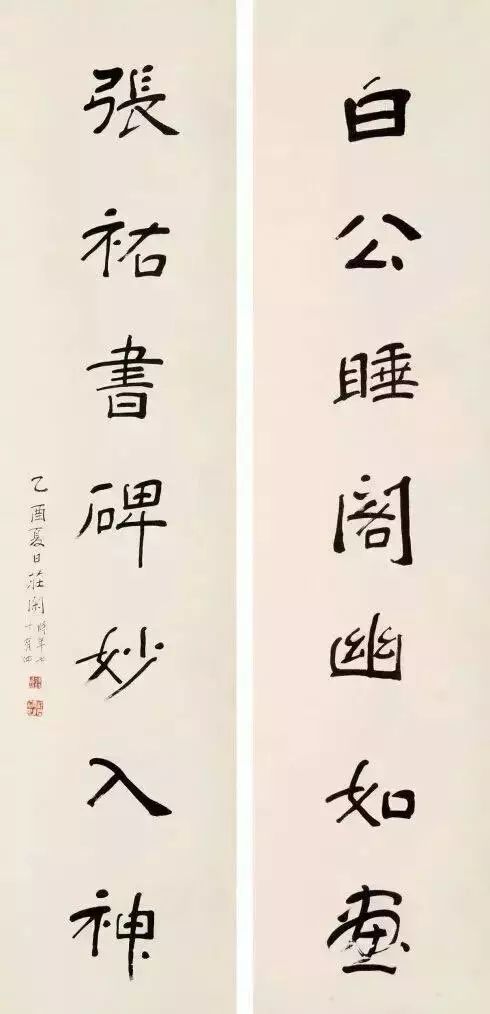 白公睡閣幽如画
張祐書碑妙入神
乙酉夏日莊閑時年七
十有四